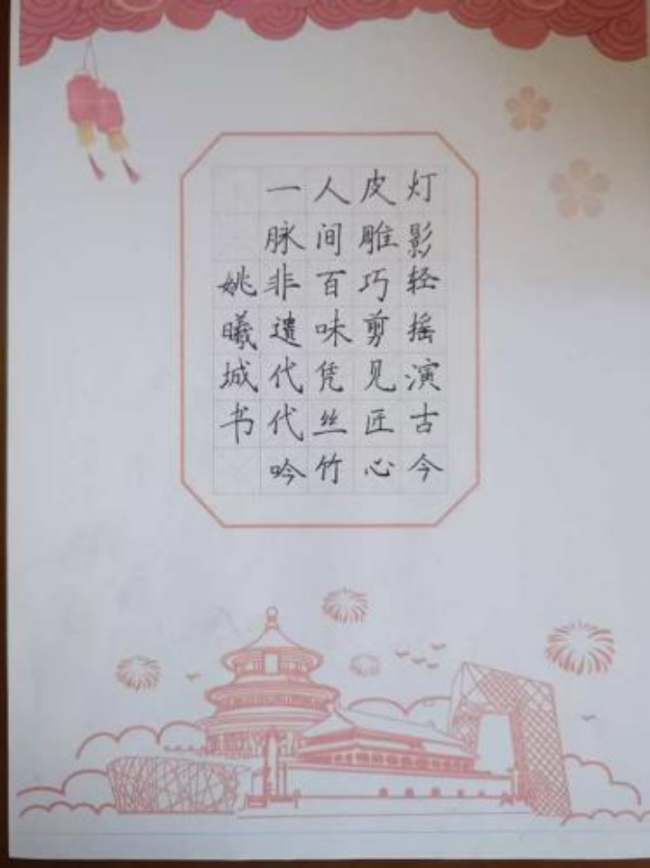 灯影轻摇演古今
皮雕巧剪见匠心
人间百味凭丝竹
一脉非遗代代吟
姚曦城书